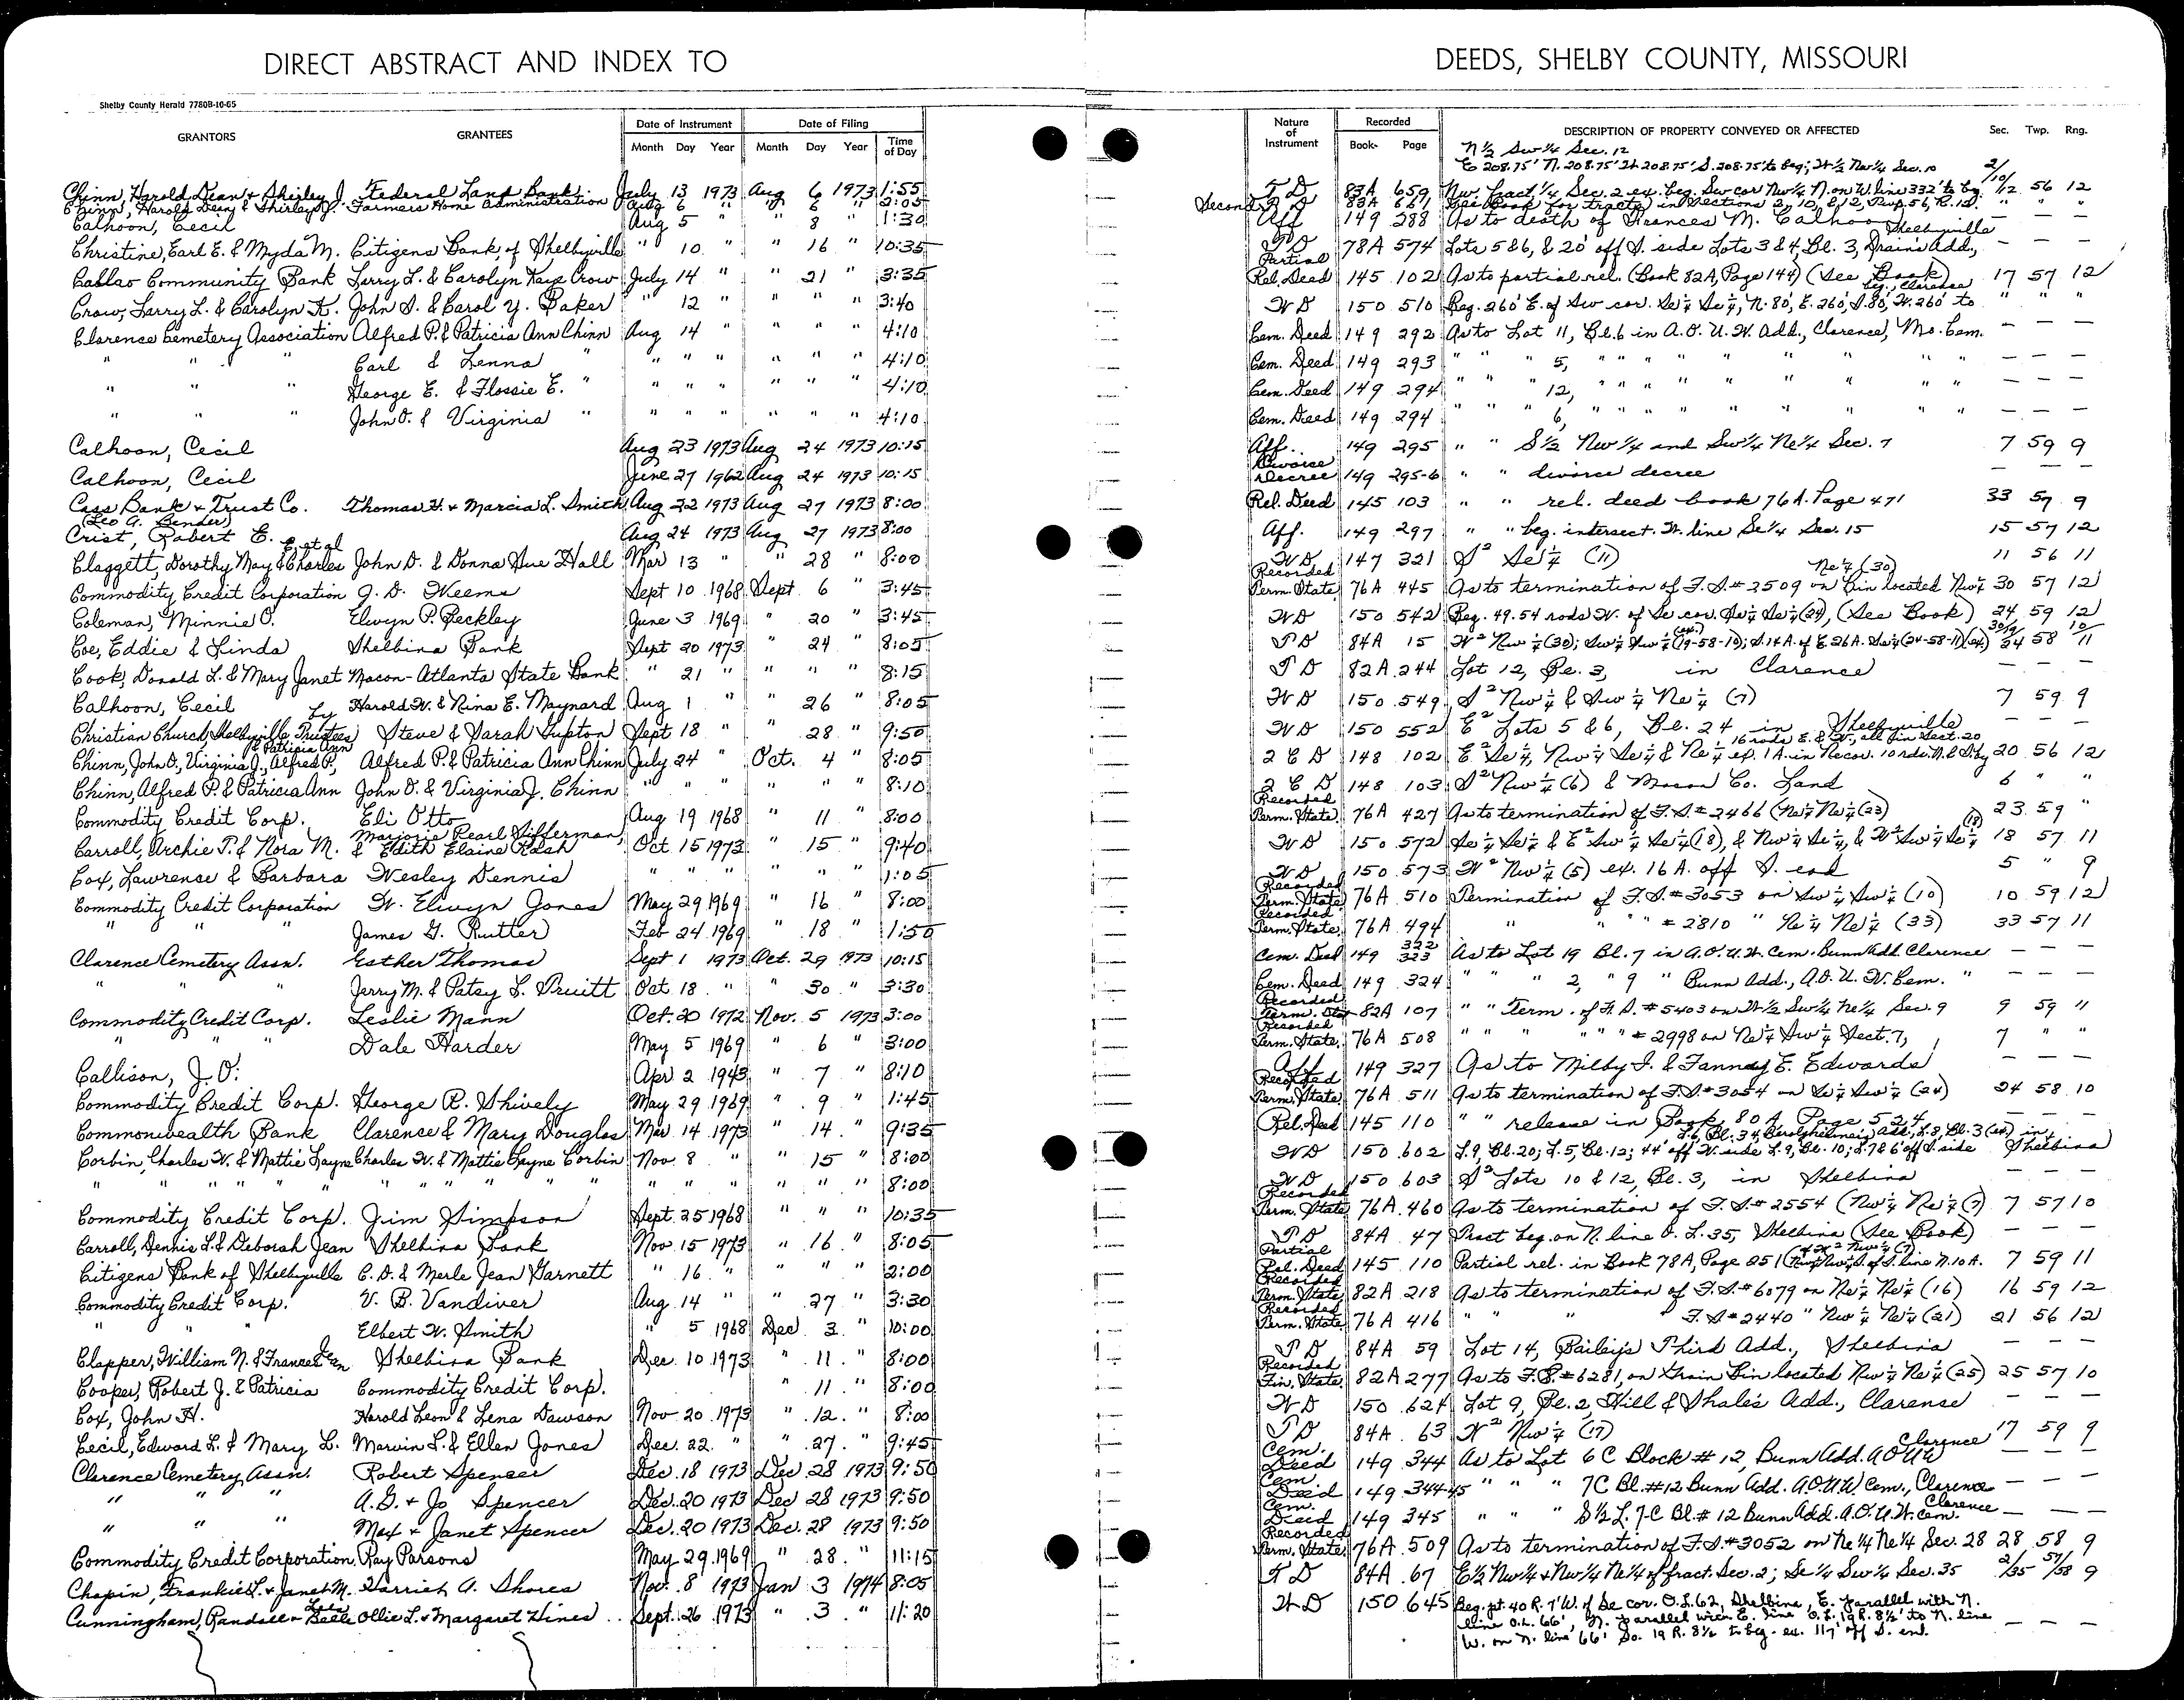 DIRECT ABSTRACT AND INDEX TO
DEEDS, SHELBY COUNTY, MISSOURI
Shelby County Herald 7780B-10-65
GRANTORS GRANTEES Date of Instrument Month Day Year Date of Filing Month Day Year Time of Day
Nature of Instrument Recorded Book Page DESCRIPTION OF PROPERTY CONVEYED OR AFFECTED Sec. Twp. Rng.
N ½ Sw ¼ Sec. 12
E 208.75' N. 208.75' W 208.75' S. 208.75' to beg; W ½ Nw ¼ Sec. 10
Chinn, Harold Dean & Shirley J. Federal Land Bank July 13 1973 Aug 6 1973 1:55 83A 659 Nw. fract. ¼ Sec. 2 ex. beg. Sw cor Nw ¼ N. on W. line 332' to beg. 2/10/12 56 12
Chinn, Harold Dean & Shirley J. Farmers Home Administration Aug 6 " " 6 " 2:05 Second 83A 661 See Book for tracts in Sections 2, 10, & 12, Twp. 56, R. 12. " " "
Calhoon, Cecil Aug 5 " 8 " 1:30 Aff 149 288 As to death of Frances M. Calhoon — — —
Christine, Earl E. & Myda M. Citizens Bank of Shelbyville " 10 " " 16 " 10:35 T D 78A 574 Lots 5 & 6, & 20' off S. side Lots 3 & 4, Bl. 3, Drain's Add., Shelbyville — — —
Community Bank Larry L. & Carolyn Kaye Crow July 14 " " 21 " 3:35 Partial Rel. Deed 145 102 As to partial rel. (Book 82A, Page 144) (See Book) 17 57 12
Crow, Larry L. & Carolyn K. John S. & Carol Y. Baker " 12 " " " " 3:40 W D 150 510 Beg. 260' E. of Sw cor. Se ¼ Se ¼, N. 80', E. 260', S. 80', W. 260' to beg., Clarence " " "
Clarence Cemetery Association Alfred P. & Patricia Ann Chinn Aug 14 " " " " 4:10 Cem. Deed 149 292 As to Lot 11, Bl. 6 in A.O.U.W. Add., Clarence, Mo. Cem. — — —
" " " Carl & Lenna " " " " " " " 4:10 Cem. Deed 149 293 " " " 5, " " " " " " " " — — —
" " " George E. & Flossie E. " " " " " " " 4:10 Cem. Deed 149 294 " " " 12, " " " " " " " " — — —
" " " John O. & Virginia " " " " " " " 4:10 Cem. Deed 149 294 " " " 6, " " " " " " " " — — —
Calhoon, Cecil Aug 23 1973 Aug 24 1973 10:15 Aff. 149 295 " " S½ Nw¼ and Sw¼ Ne¼ Sec. 7 7 59 9
Calhoon, Cecil June 27 1962 Aug 24 1973 10:15 Divorce Decree 149 295-6 " " divorce decree — — —
Cass Bank & Trust Co. Thomas H. & Marcia L. Smith Aug 22 1973 Aug 27 1973 8:00 Rel. Deed 145 103 " " rel. deed book 76A. Page 471 33 57 9
(Leo A. Bender)
Crist, Robert E. Aug 24 1973 Aug 27 1973 8:00 Aff. 149 297 " " beg. intersect. W. line Se¼ Sec. 15 15 57 12
Claggett, Dorothy May & Charles et al John D. & Donna Sue Hall Mar 13 " " 28 " 8:00 W D 147 321 S² Se¼ (11) 11 56 11
Commodity Credit Corporation J. D. Weems Sept 10 1968 Sept. 6 " 3:45 Recorded Term. State. 76A 445 As to termination of F.S. # 2509 on bin located Nw¼ Ne¼ (30) 30 57 12
Coleman, Minnie O. Elwyn P. Peckley June 3 1969 " 20 " 3:45 W D 150 542 Beg. 49.54 rods W. of Se cor. Se¼ Se¼ (24), (See Book) 24 59 12
Coe, Eddie & Linda Shelbina Bank Sept 20 1973 " 24 " 8:05 T D 84A 15 W² Nw¼ (30); Sw¼ Sw¼ (ex.) (19-58-10); S. 14A. of E. 26A. Se¼ (24-58-11) (ex.) 30/19/24 58 10/11
Cook, Donald L. & Mary Janet Macon-Atlanta State Bank " 21 " " " " 8:15 T D 82A 244 Lot 12, Bl. 3, in Clarence — — —
Calhoon, Cecil Harold W. & Nina E. Maynard Aug 1 " " 26 " 8:05 W D 150 549 S² Nw¼ & Sw¼ Ne¼ (7) 7 59 9
Christian Church, Shelbyville by Trustees Steve & Sarah Gupton Sept 18 " " 28 " 9:50 W D 150 552 E² Lots 5 & 6, Bl. 24 in Shelbyville — — —
Chinn, John O., Virginia J., Alfred P. & Patricia Ann Alfred P. & Patricia Ann Chinn July 24 " Oct. 4 " 8:05 2 C D 148 102 E² Se¼, Nw¼ Se¼ & Ne¼ ex. 1A. in Ne cor. 10 rds. N. & S. by 16 rods E. & W., all in Sect. 20 20 56 12
Chinn, Alfred P. & Patricia Ann John O. & Virginia J. Chinn " " " " " " 8:10 2 C D 148 103 S² Nw¼ (6) & Macon Co. Land 6 " "
Commodity Credit Corp. Eli Otto Aug 19 1968 " 11 " 8:00 Recorded Term. State. 76A 427 As to termination of F.S. # 2466 (Nw¼ Ne¼ (23) 23 59 "
Carroll, Archie T. & Nora M. Marjorie Pearl Sifferman, & Edith Elaine Rash Oct 15 1973 " 15 " 9:40 W D 150 572 Se¼ Se¼ & E² Sw¼ Se¼ (18), & Nw¼ Se¼, & W² Sw¼ Se¼ (18) 18 57 11
Cox, Lawrence & Barbara Wesley Dennis " " " " " " 1:05 W D 150 573 W² Nw¼ (5) ex. 16 A. off S. end 5 " 9
Commodity Credit Corporation W. Elwyn Jones May 29 1969 " 16 " 8:00 Recorded Term. State. 76A 510 Termination of F.S. # 3053 on Sw¼ Sw¼ (10) 10 59 12
" " " James G. Rutter Feb 24 1969 " 18 " 1:50 Recorded Term. State. 76A 494 " " " # 2810 " Ne¼ Ne¼ (33) 33 57 11
Clarence Cemetery Assn. Esther Thomas Sept 1 1973 Oct. 29 1973 10:15 Cem. Deed 149 322 323 As to Lot 19 Bl. 7 in A.O.U.W. Cem. Bunn Add. Clarence — — —
" " " Jerry M. & Patsy L. Pruitt Oct 18 " " 30 " 3:30 Cem. Deed 149 324 " " " 2, " 9 " Bunn Add., A.O.U.W. Cem. " — — —
Commodity Credit Corp. Leslie Mann Oct. 20 1972 Nov. 5 1973 3:00 Recorded Term. Stat 82A 107 " " Term. of F.S. # 5403 on W½ Sw¼ Ne¼ Sec. 9 9 59 "
" " " Dale Harder May 5 1969 " 6 " 3:00 Recorded Term. State. 76A 508 " " " " " " # 2998 on Ne¼ Sw¼ Sect. 7, 7 " "
Callison, J. O. Apr 2 1943 " 7 " 8:10 Aff 149 327 As to Milby J. & Fanny E. Edwards — — —
Commodity Credit Corp. George R. Shively May 29 1969 " 9 " 1:45 Recorded Term. State. 76A 511 As to termination of F.S. # 3054 on Se¼ Sw¼ (24) 24 58 10
Commonwealth Bank Clarence & Mary Douglas Mar. 14 1973 " 14 " 9:35 Rel. Deed 145 110 " " release in Book 80A, Page 524 — — —
Corbin, Charles W. & Mattie Layne Charles W. & Mattie Layne Corbin Nov. 8 " " 15 " 8:00 W D 150 602 L. 9, Bl. 20; L. 5, Bl. 12; 44' off W. side L. 9, Bl. 10; L. 7 & 6' off S. side L. 6, Bl. 34, Add., L. 8, Bl. 3 (ex) in Shelbina
" " " " " " " " " " " " " " 8:00 W D 150 603 S² Lots 10 & 12, Bl. 3, in Shelbina — — —
Commodity Credit Corp. Jim Simpson Sept. 25 1968 " " " 10:35 Recorded Term. State. 76A 460 As to termination of F.S. # 2554 (Nw¼ Ne¼ (7) 7 57 10
Carroll, Dennis L. & Deborah Jean Shelbina Bank Nov 15 1973 " 16 " 8:05 T D 84A 47 Tract beg. on N. line O. L. 35, Shelbina (See Book) — — —
Citizens Bank of Shelbyville C. D. & Merle Jean Garnett " 16 " " " " 2:00 Partial Rel. Deed 145 110 Partial rel. in Book 78A, Page 251 S. of S. line N. 10 A. of W² Nw¼ (7) 7 59 11
Commodity Credit Corp. V. B. Vandiver Aug. 14 " " 27 " 3:30 Recorded Term. State 82A 218 As to termination of F.S. # 6079 on Ne¼ Ne¼ (16) 16 59 12
" " " Elbert W. Smith " 5 1968 Dec 3 " 10:00 Recorded Term. State. 76A 416 " " " F.S. # 2440 " Nw¼ Ne¼ (21) 21 56 12
Clapper, William N. & Frances Jean Shelbina Bank Dec. 10 1973 " 11 " 8:00 T D 84A 59 Lot 14, Bailey's Third Add., Shelbina — — —
Cooper, Robert J. & Patricia Commodity Credit Corp. " 11 " 8:00 Recorded Fin. State. 82A 277 As to F.S. # 6281, on Grain Bin located Nw¼ Ne¼ (25) 25 57 10
Cox, John H. Harold Leon & Lena Dawson Nov 20 1973 " 12 " 8:00 W D 150 624 Lot 9, Bl. 2, Hill & Shale's Add., Clarence — — —
Cecil, Edward L. & Mary L. Marvin L. & Ellen Jones Dec. 22 " " 27 " 9:45 T D 84A 63 W² Nw¼ (17) 17 59 9
Clarence Cemetery Assn. Robert Spencer Dec. 18 1973 Dec 28 1973 9:50 Cem. Deed 149 344 As to Lot 6 C Block # 12, Bunn Add. AOUW Clarence — — —
" " " A. G. & Jo Spencer Dec. 20 1973 Dec 28 1973 9:50 Cem. Deed 149 344-45 " " " 7C Bl. #12 Bunn Add. A.O.U.W Cem., Clarence — — —
" " " Max & Janet Spencer Dec. 20 1973 Dec. 28 1973 9:50 Cem. Deed 149 345 " " " S½ L. 7-C Bl. # 12 Bunn Add. A.O.U.W. Cem. Clarence — — —
Commodity Credit Corporation Ray Parsons May 29 1969 " 28 " 11:15 Recorded Term. State. 76A 509 As to termination of F.S. # 3052 on Ne¼ Ne¼ Sec. 28 28 58 9
Chapin, Frankie L. & Janet M. Harriet A. Shores Nov. 8 1973 Jan 3 1974 8:05 T D 84A 67 E½ Nw¼ & Nw¼ Ne¼ of fract. Sec. 2; Se¼ Sw¼ Sec. 35 2/35 57/58 9
Cunningham, Randall & Belle Ollie L. & Margaret Hines Sept. 26 1973 " 3 " 11:20 W D 150 645 Beg. pt. 40 R. 7' W. of Se cor. O.L. 62, Shelbina, E. parallel with N.
line O.L. 66', N. parallel with E. line O.L. 19 R. 8½' to N. line
W. on N. line 66' So. 19 R. 8½ to beg. ex. 117' off S. end. — — —